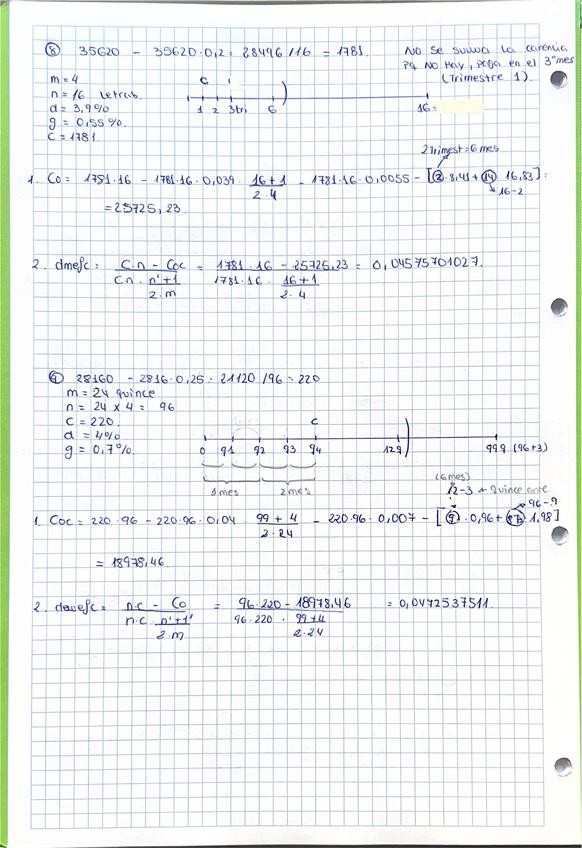 ⑧ 35620 - 35620·0,2 = 28496/16 = 1781.
No se suma la carencia
pq no hay, paga en el 3er mes
(Trimestre 1).
m = 4
n = 16 letras.
d = 3,9%
g = 0,55%.
C = 1781.
C
1 2 3tri 6 16=
2 Trimest = 6 mes
1. Co = 1781·16 - 1781·16·0,039 · 16+1 / 2·4 - 1781·16·0,0055 - [② · 8,41 + ⑭ · 16,83] =
16-2
= 25725,23.
2. dmefc = C·n - Coc / Cn · n'+1 / 2·m = 1781·16 - 25725,23 / 1781·16 · 16+1 / 2·4 = 0,04575701027.
⑨ 28160 - 2816·0,25 = 21120/96 = 220
m = 24 quince
n = 24 x 4 = 96
C = 220.
d = 4%
g = 0,7%.
C
0 q1 q2 q3 q4 12q 99q (96+3)
1 mes 2 mes
(6 mes)
12-3 quince ante
96-9
1. Coc = 220·96 - 220·96·0,04 · 99+4 / 2·24 - 220·96·0,007 - [⑨ · 0,96 + 87 · 1,98]
= 18978,46.
2. dmefc = n·c - Co / n·c · n'+1' / 2·m = 96·220 - 18978,46 / 96·220 · 99+4 / 2·24 = 0,0472537511.